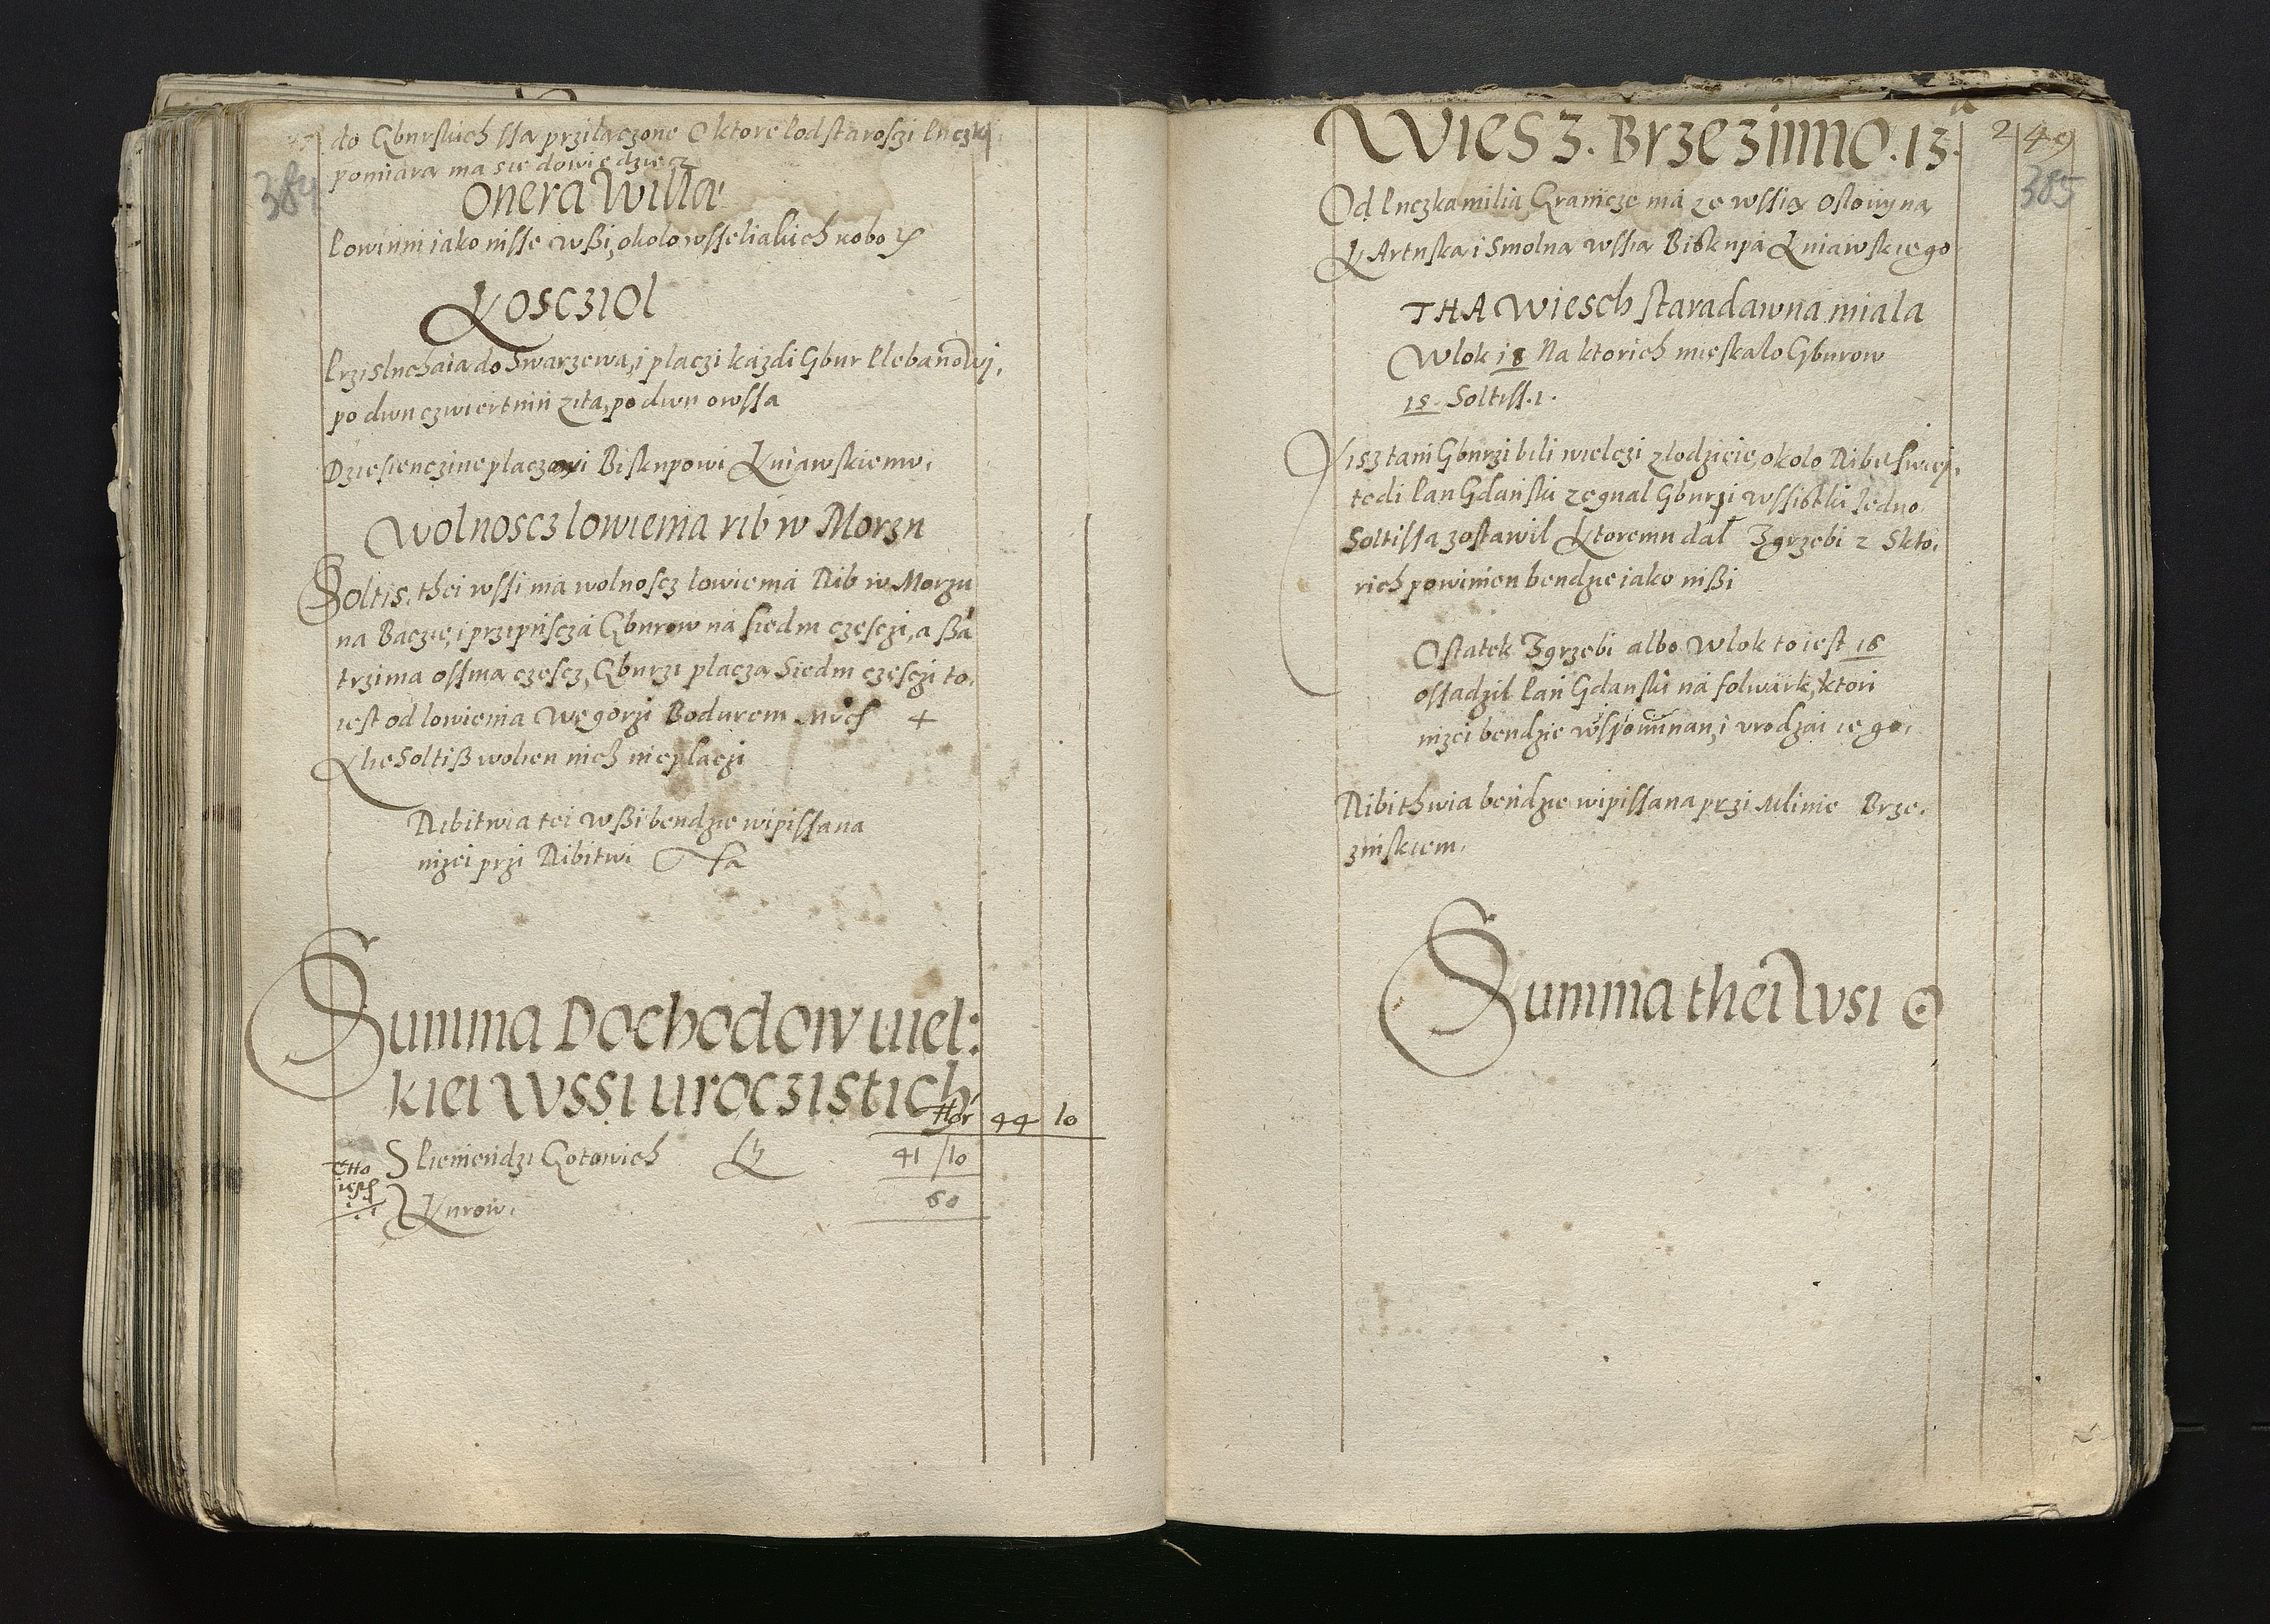 384
do Gburskich ssa prziłączone O ktore Podstarosczi Puczky
pomiara ma sie dowiedziecz
Onera Willæ
Powinni iako nisse wßi, około wsseliakich robo
Koscziol
Przisluchaia do Swarzewa, i placzi kazdi Gbur Plebanowi,
po dwu czwiertnii zita, po dwu owssa
Dziesienczine placza Biskupowi Kuiawskiemu.
Wolnoscz lowienia rib w Morzu
Soltis, thei wssi ma wolnoscz lowienia Rib w Morzu
na Baczie, i przipuscza Gburow na siedm czesczi, a ßa
trzima ossma czescz, Gburzi placza Siedm czesczi to
iest od lowienia Węgorzi Bodurem +
Ale Soltiß wolien nich nie placzi
Ribitwia tei wßi bendzie wipissana
nizei przi Ribitwi
Summa Dochodow wiel:
kiei Wssi uroczistich
flor 44 10
Tho iest
Pieniendzi Gotowich 41 / 10
Kurow. 60
Wies 3. Brzezinno. 13.
2 49
385
Od Puczka milia, Granicze ma ze wssią Ostowyna,
Kartuska i Smolna wssia Biskupa Kuiawskiego
THA Wiesch staradawna miala
Wlok 18 Na ktorich mieskało Gburow
15. Soltiss. 1.
Isz tam Gburzi bili wielczi zlodzieie, okolo Ribit swiej,
tedi Pan Gdański zegnal Gburzi wssistki Jedno
Soltissa zostawil Ktoremu dał Zgrzebi 2 Skto,
rich powinien bendzie iako nißi
Ostatek Zgrzebi albo Wlok to iest 16
ossadzil Pan Gdanski na folwark, ktori
nizei bendzie wspominan, i urodzai iego,
Ribithwia bendzie wipissana przi Mlinie Brze,
zinskiem,
Summa thei Wsi